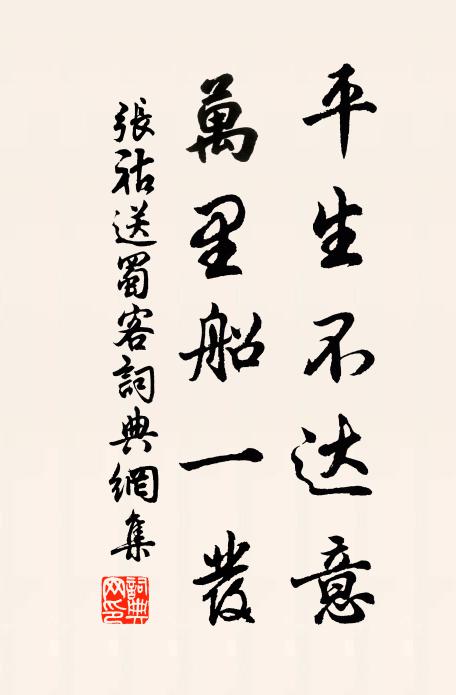 平生不达意
萬里船一發
張祜送蜀客詞典網集
詞典网印